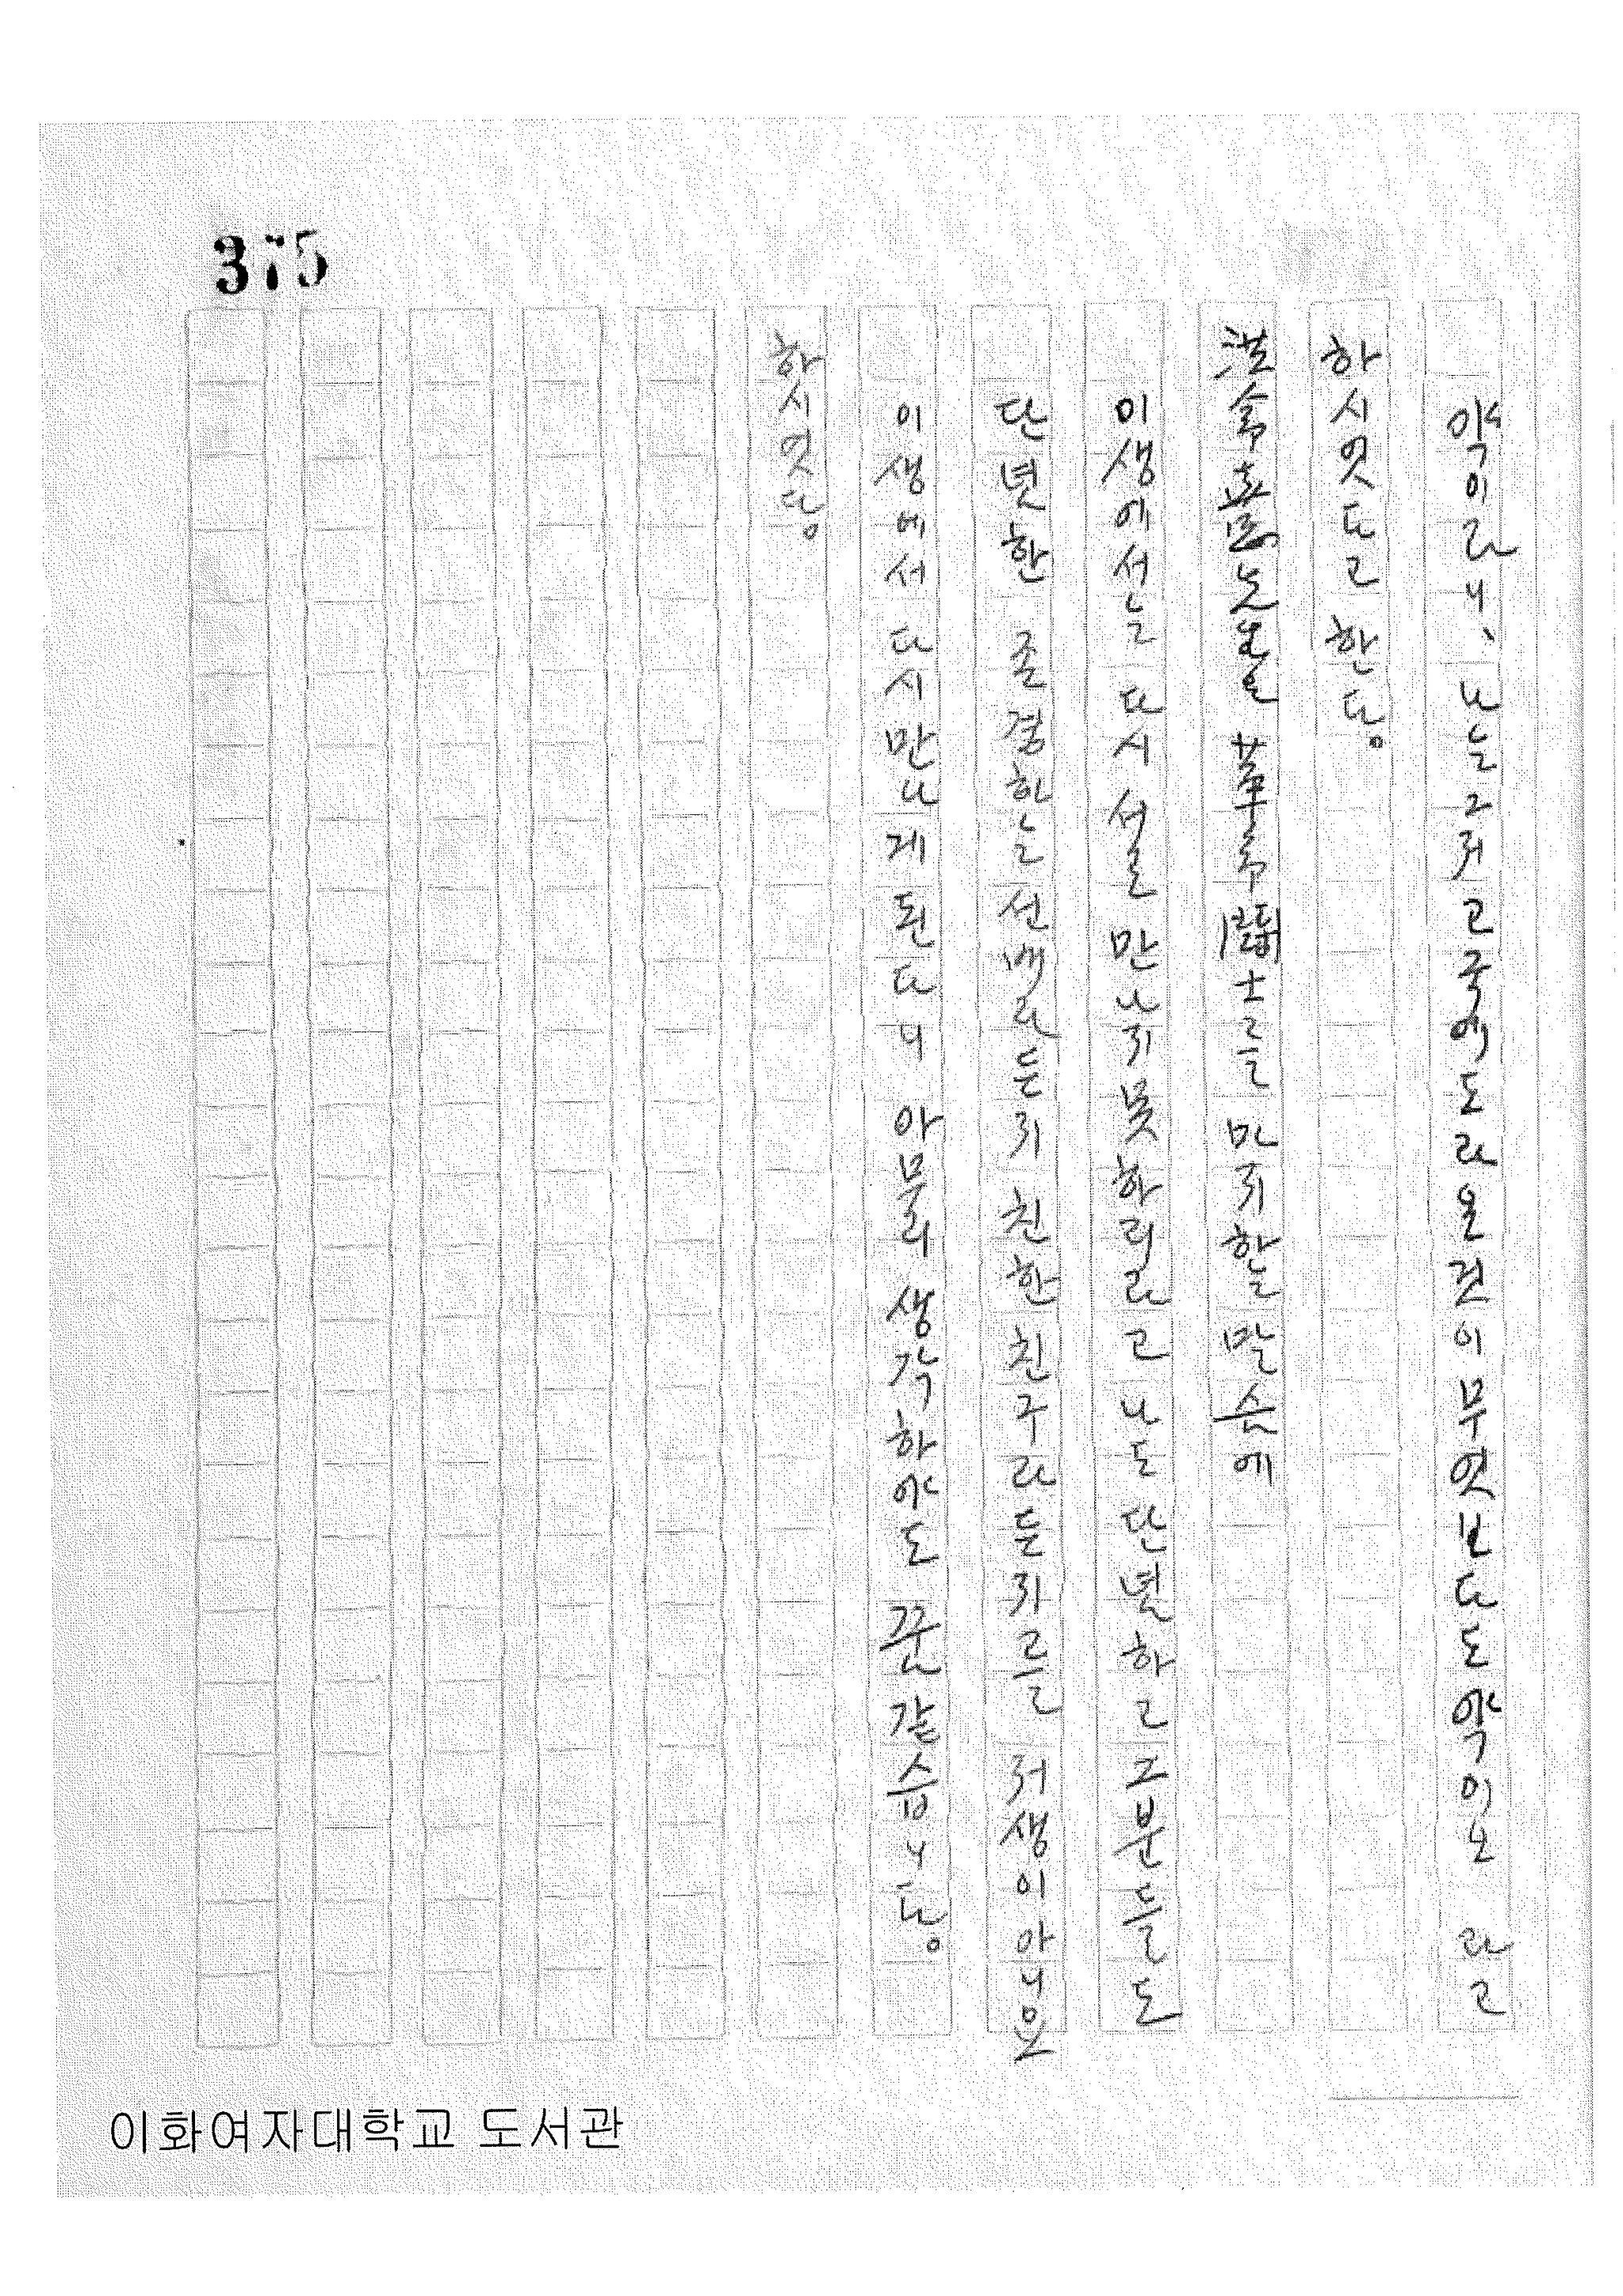 375
약이라니、 나는 그저 고국에 도라 올 것이 무엇보다도 약이오 라고
하시엇다고 한다。
노은은 革命鬪士를 마지하는 말슴에
이생에서는 다시 서로 만나지 못하리라고 나도 단념하고 그분들도
단념한 존경하는 선배라든지 친한 친구라든지를 저생이 아니오
이생에서 다시 만나게 된다니 아무리 생각하야도 꿈 같습니다。
하시엇다。
이화여자대학교 도서관